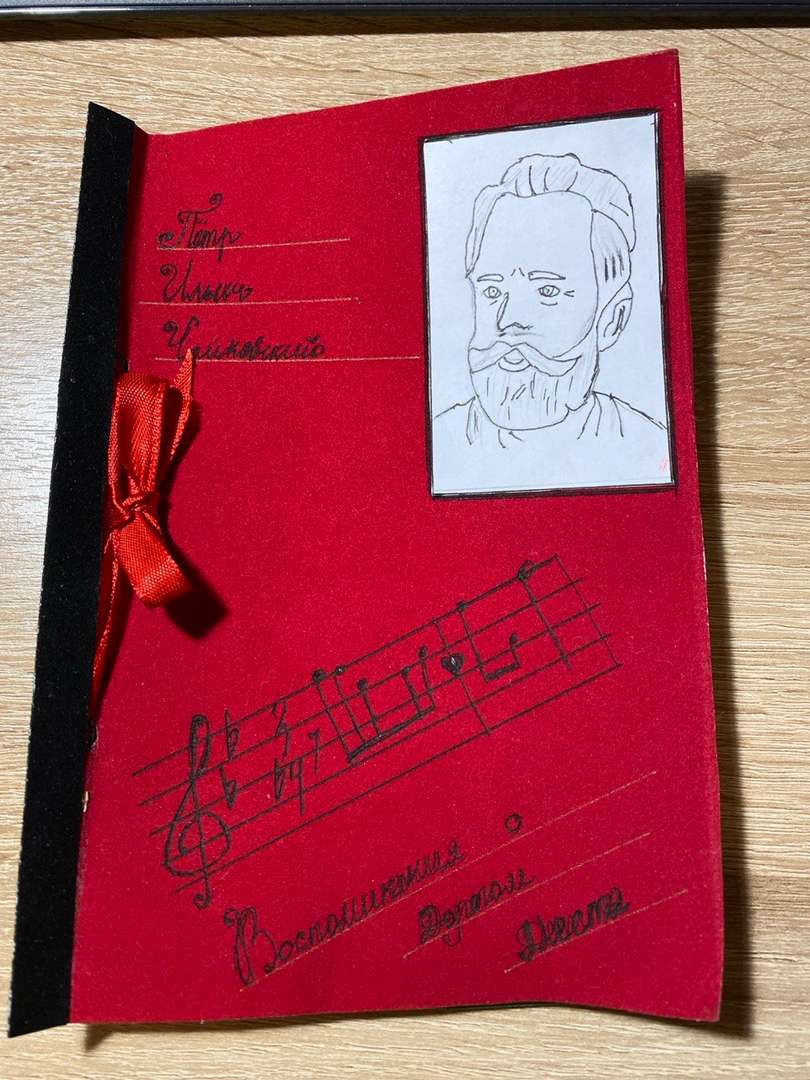 Пётр
Ильич
Чайковский
Воспоминания о
Дорогом
Месте